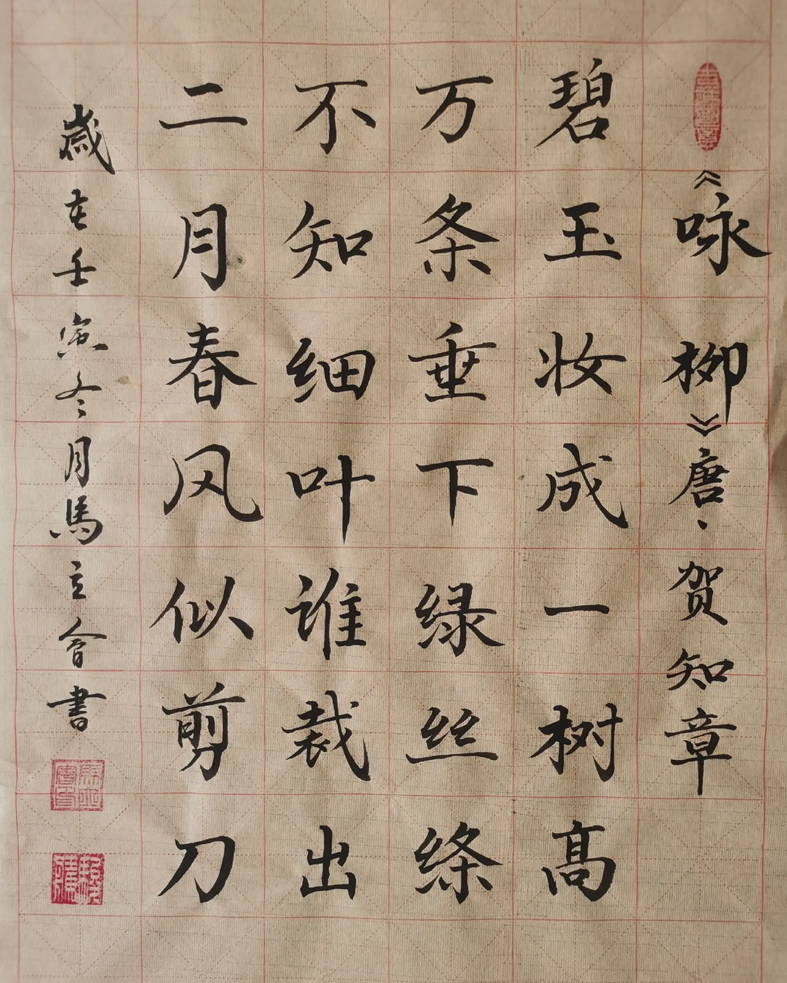 《咏柳》唐、贺知章
碧玉妆成一树高
万条垂下绿丝绦
不知细叶谁裁出
二月春风似剪刀
歲在壬寅冬月馬立會書